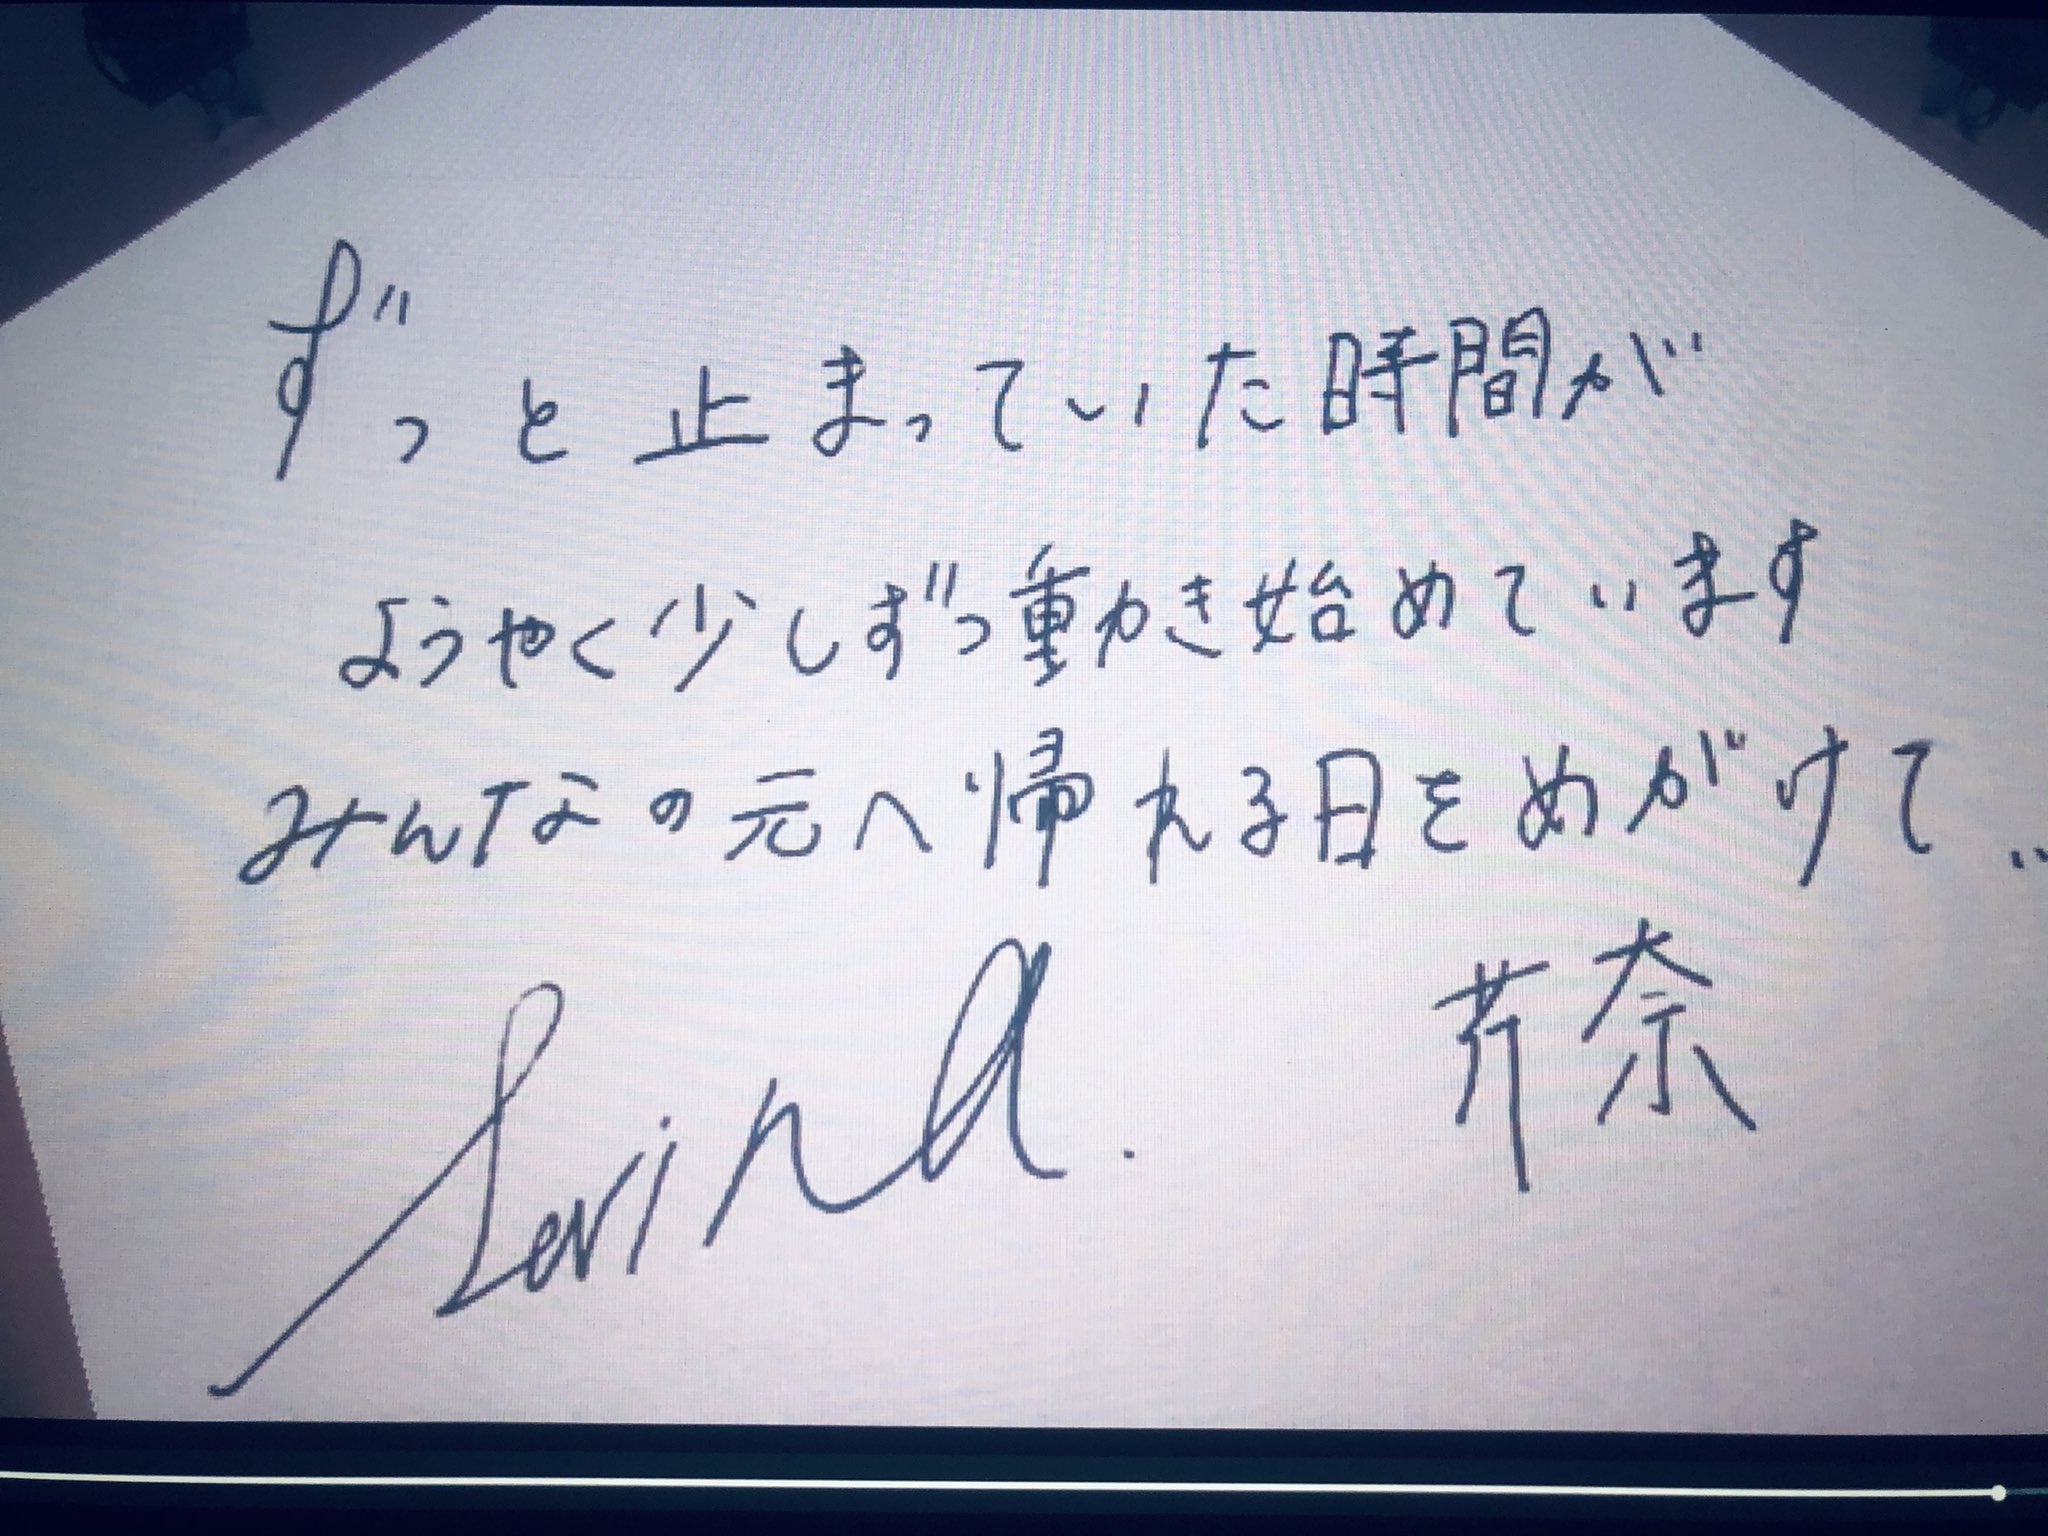 ずっと止まっていた時間が
ようやく少しずつ動き始めています
みんなの元へ帰れる日をめがけて..
Serina. 芹奈